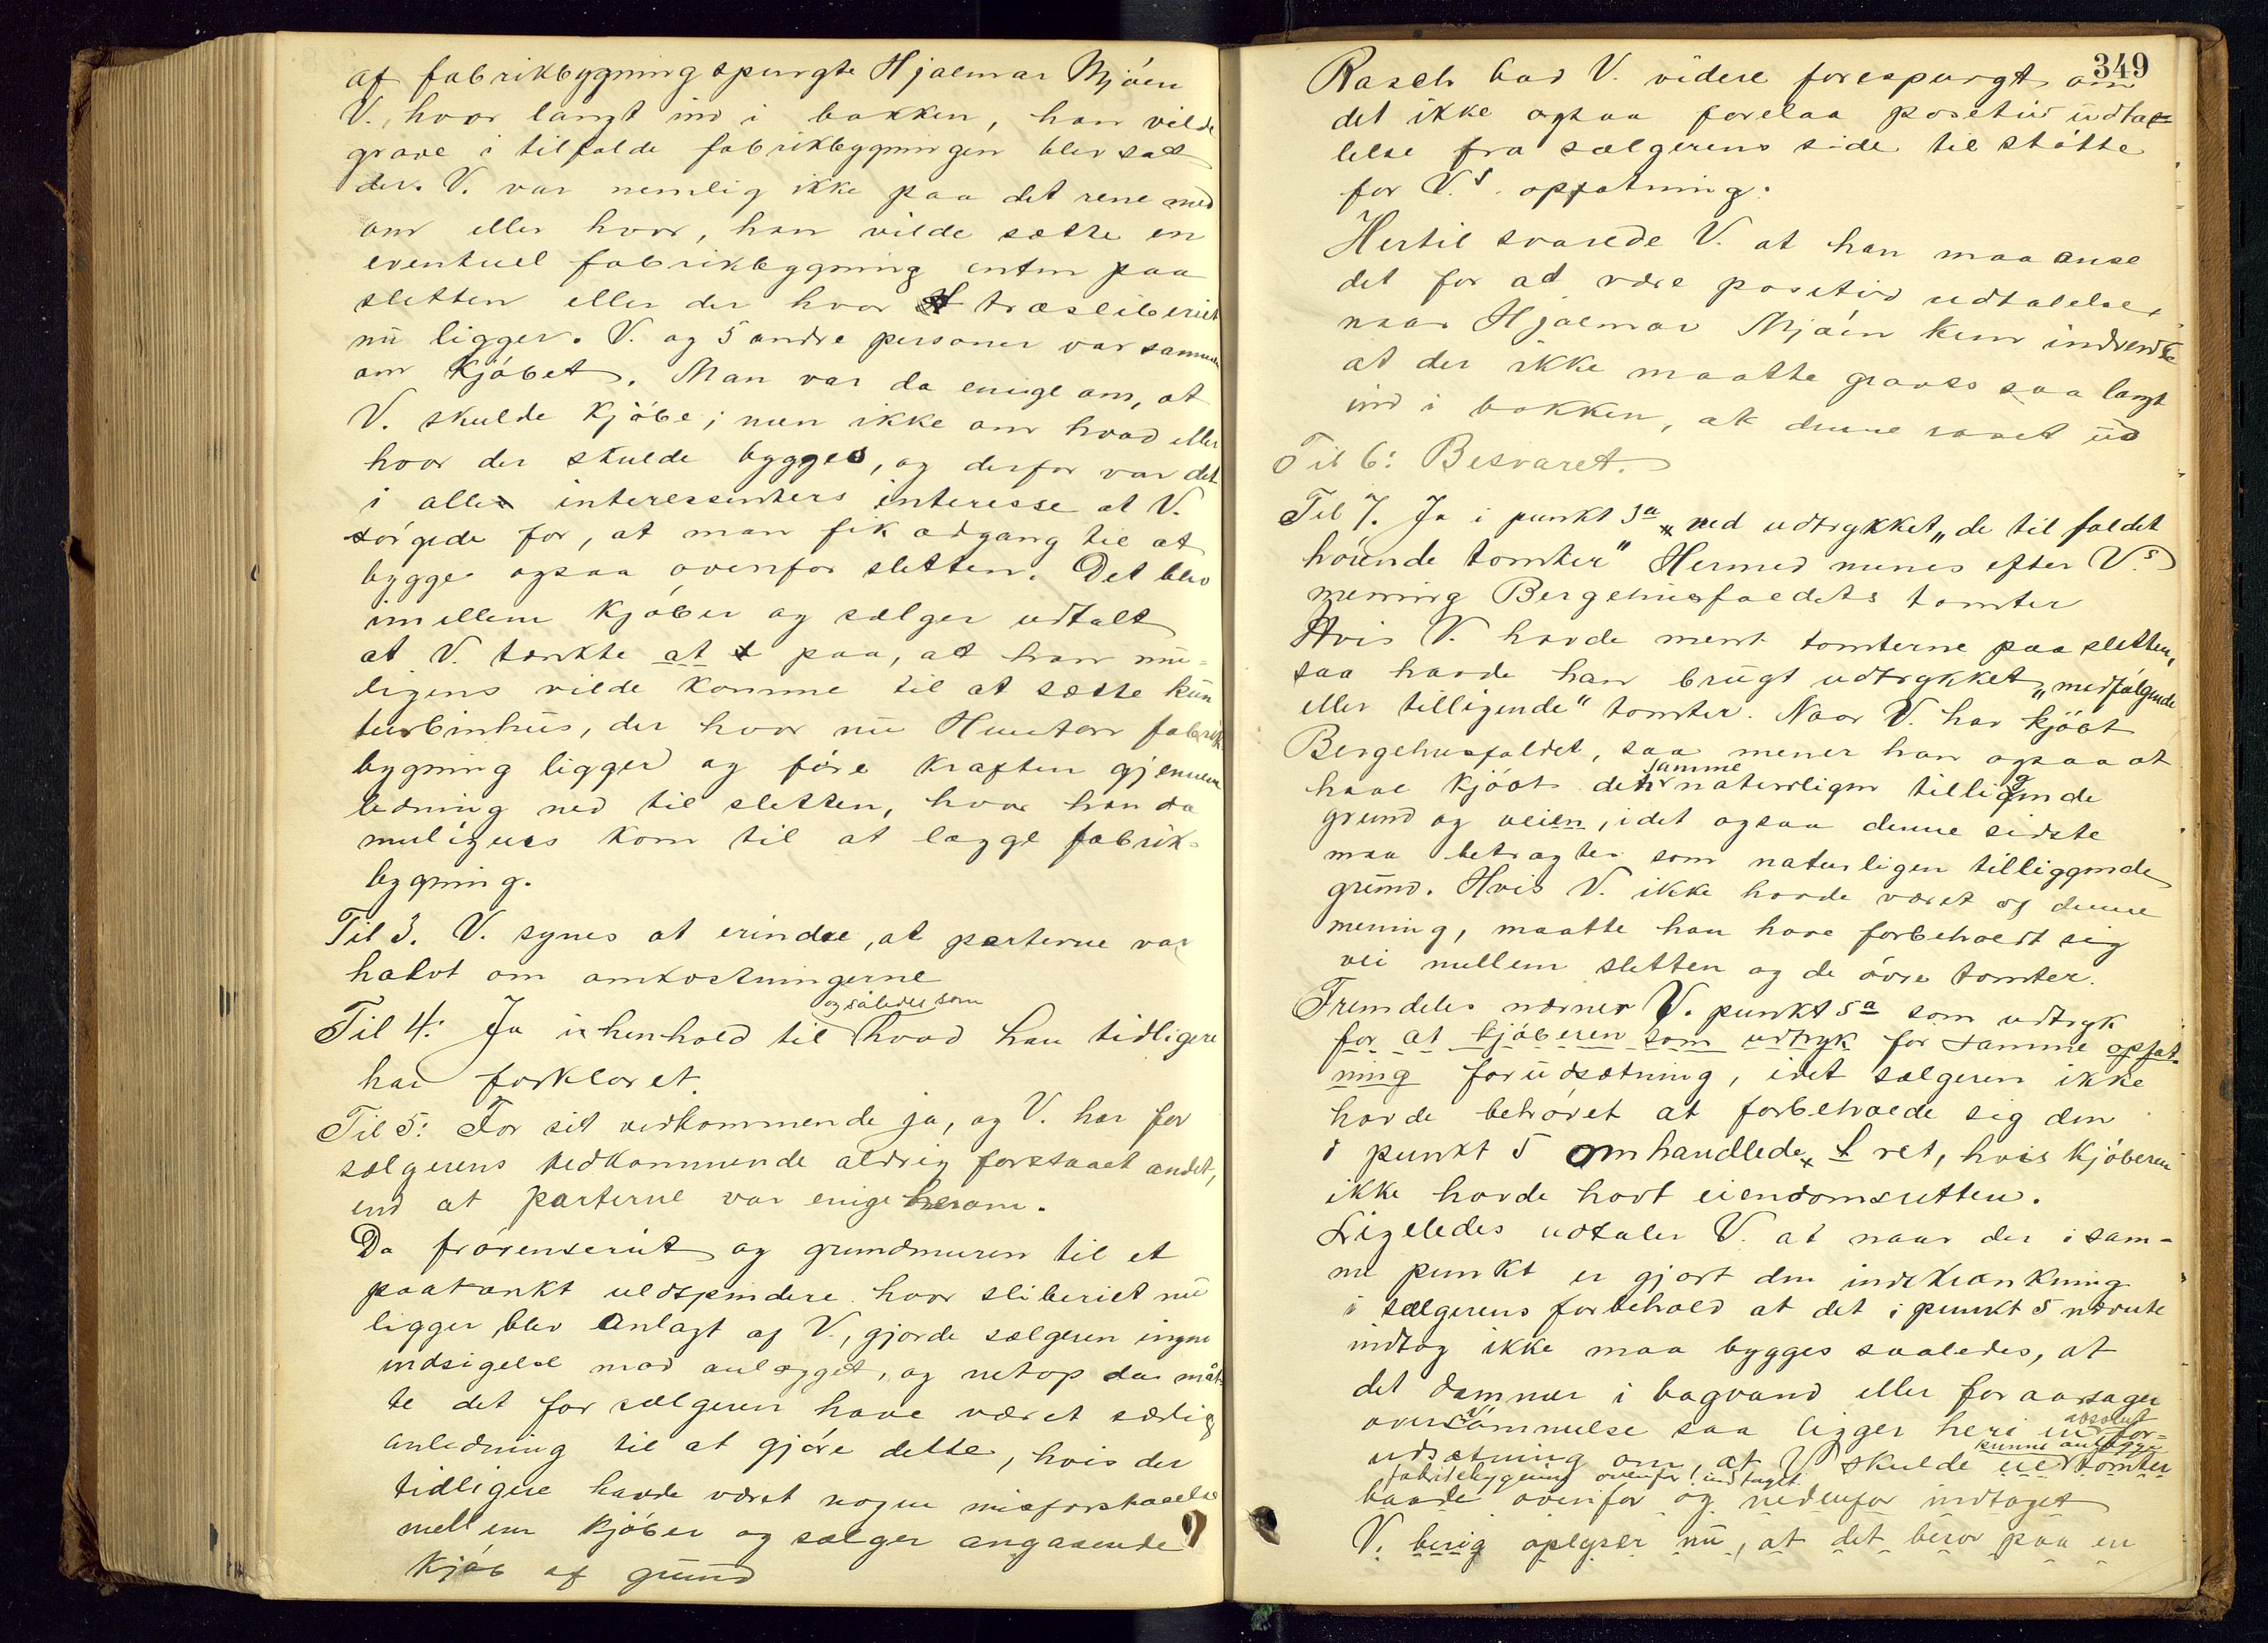 af fabrikbygning spurgte Hjalmar Mjøen
V., hvor langt ind i bakken, han vilde
grave i tilfælde fabrikbygningen blev sat
der. V. var nemlig ikke paa det rene med
om eller hvor, han vilde sætte en
eventuel fabrikbygning enten paa
sletten eller der hvor træsliberiet
nu ligger. V. og 5 andre personer var sammen
om kjøbet. Man var da enige om, at
V. skulde kjøbe; men ikke om hvad eller
hvor der skulde bygges, og derfor var det
i alle interessenters interesse at V.
sørgede for, at man fik adgang til at
bygge ogsaa ovenfor sletten. Det blev
imellem kjøber og sælger udtalt
at V. tænkte at paa, at han mu-
ligens vilde komme til at sætte kun
turbinhus, der hvor nu Hunton fabrik
bygning ligger og føre kraften gjennem
ledning ned til sletten, hvor han da
muligens kom til at lægge fabrik-
bygning.
Til 3. V. synes at erindre, at parterne var
halvt om omkostningerne
Til 4: Ja i henhold til og således som hvad han tidligere
har forklaret
Til 5: For sit vedkommende ja, og V. har for
sælgerens vedkommende aldrig forstaaet andet,
end at parterne var enige herom.
Da frørenseriet og grundmuren til et
paatænkt uldspinderi hvor sliberiet nu
ligger blev anlagt af V., gjorde sælgeren ingen
indsigelse mod anlægget, og netop da måt-
te det for sælgeren have været særlig
anledning til at gjøre dette, hvis der
tidligere havde været nogen misforstaaelse
mellem kjøber og sælger angaaende
kjøb af grund
349
Rasch bad V. videre forespurgt om
det ikke ogsaa forelaa posetiv udta-
lelse fra sælgerens side til støtte
for V.s opfatning.
Hertil svarede V. at han maa anse
det for at være positiv udtalelse,
naar Hjalmar Mjøen kun indvendte
at der ikke maatte graves saa langt
ind i bakken, at denne raset ud
Til 6: Besvaret.
Til 7. Ja i punkt 3a ved udtrykket „de til faldet
hørende tomter" Hermed menes efter V.s
mening Bergehusfaldets tomter
Hvis V. havde ment tomterne paa sletten,
saa havde han brugt udtrykket „medfølgende
eller tilligende" tomter. Naar V. har kjøbt
Bergehusfaldet, saa mener han ogsaa at
have kjøbt den samme naturligen tilliggende
grund og veien, idet ogsaa denne sidste
maa betragtes som naturligen tilliggende
grund. Hvis V. ikke havde været af denne
mening, maatte han have forbeholdt sig
vei mellem sletten og de øvre tomter.
Fremdeles nævner V. punkt 5a som udtryk
for at kjøberen som udtryk for samme opfat-
ning forudsætning, idet sælgeren ikke
havde behøvet at forbeholde sig den
i punkt 5 omhandlede ret, hvis kjøberen
ikke havde havt eiendomsretten.
Ligeledes udtaler V. at naar der i sam-
me punkt er gjort den indskrænkning
i sælgerens forbehold at det i punkt 5 nævnte
indtag ikke maa bygges saaledes, at
det dammer i bagvand eller foraarsager
oversvømmelse saa ligger heri en absolut for-
udsætning om, at V skulde kunne anlægge eie tomter
fabrikbygning ovenfor indtaget
baade ovenfor og nedenfor indtaget
V. berig oplyser nu, at det beror paa en